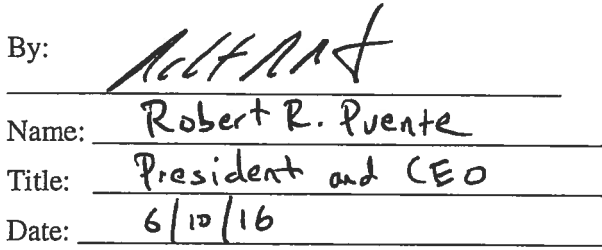 By:
Name: Robert R. Puente
Title: President and CEO
Date: 6/10/16